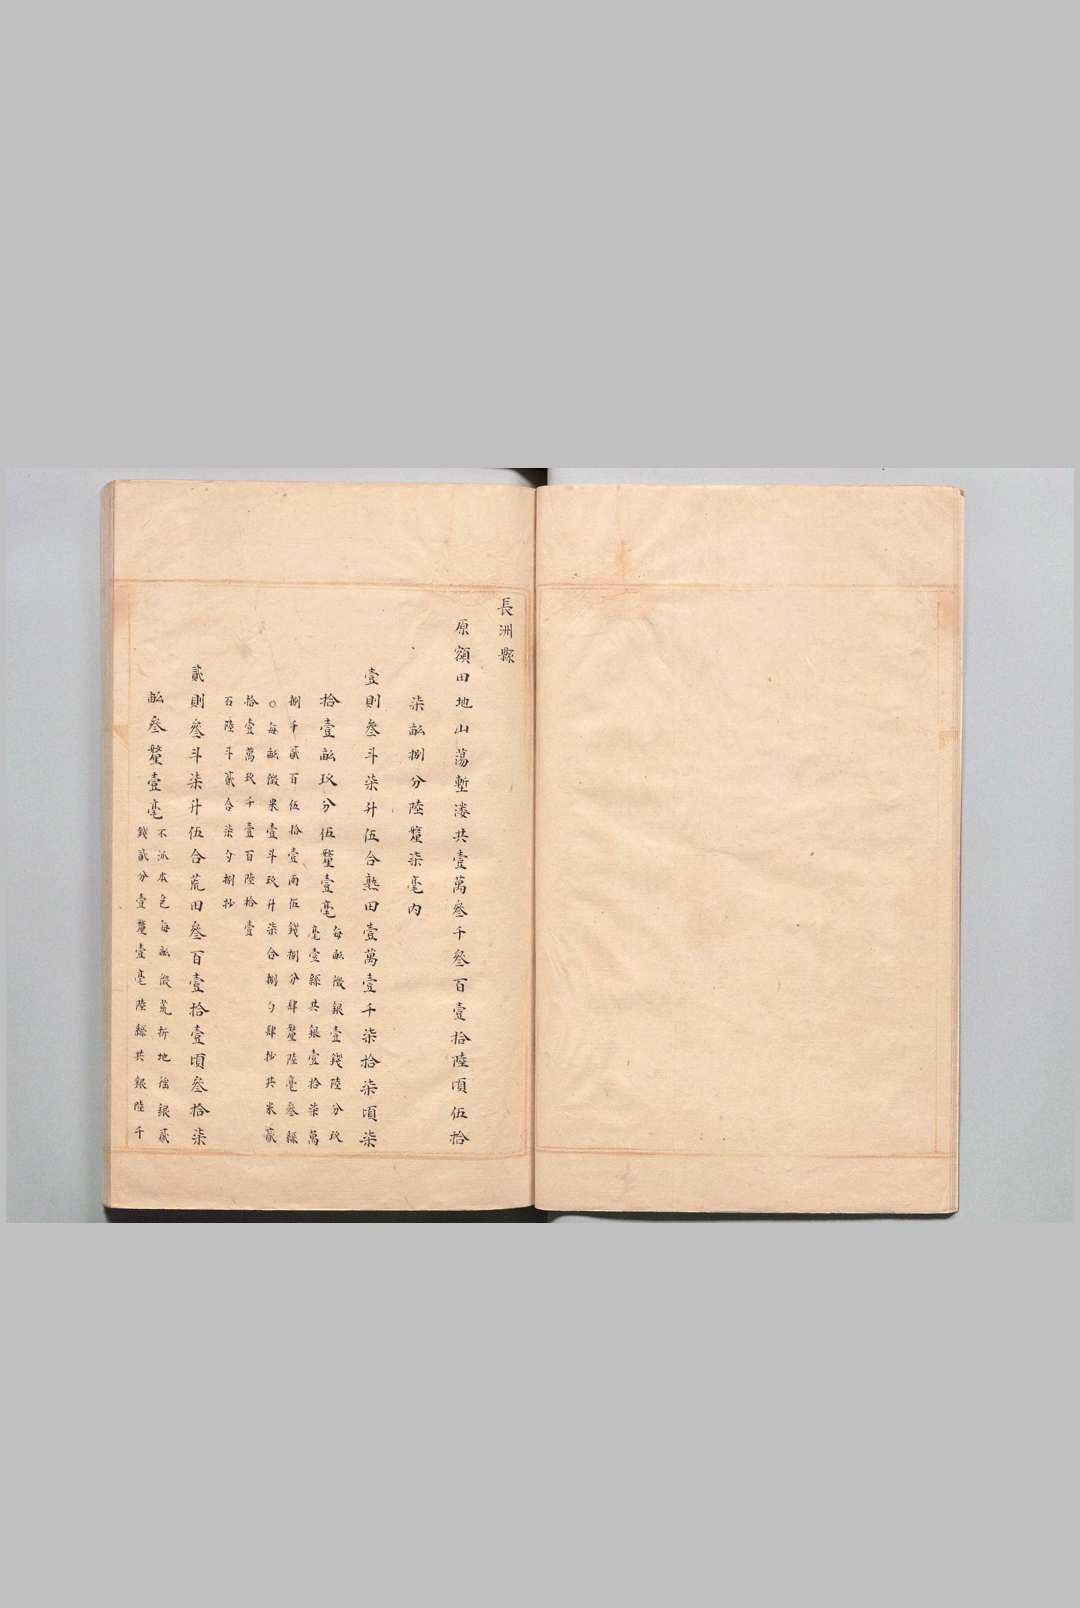 長洲縣
原額田地山蕩塹漊共壹萬叄千叄百壹拾陸頃伍拾
柒畝捌分陸釐柒毫內
壹則叄斗柒升伍合熟田壹萬壹千柒拾柒頃柒
拾壹畝玖分伍釐壹毫
每畝徵銀壹錢陸分玖
毫壹絲共銀壹拾柒萬
捌千貳百伍拾壹兩伍錢捌分肆釐陸毫叄絲
○每畝徵米壹斗玖升柒合捌勺肆抄共米貳
拾壹萬玖千壹百陸拾壹
石陸斗貳合柒勺捌抄
貳則叄斗柒升伍合荒田叄百壹拾壹頃叄拾柒
畝叄釐壹毫
不派本色每畝徵荒折地福銀貳
錢貳分壹釐壹毫陸絲共銀陸千